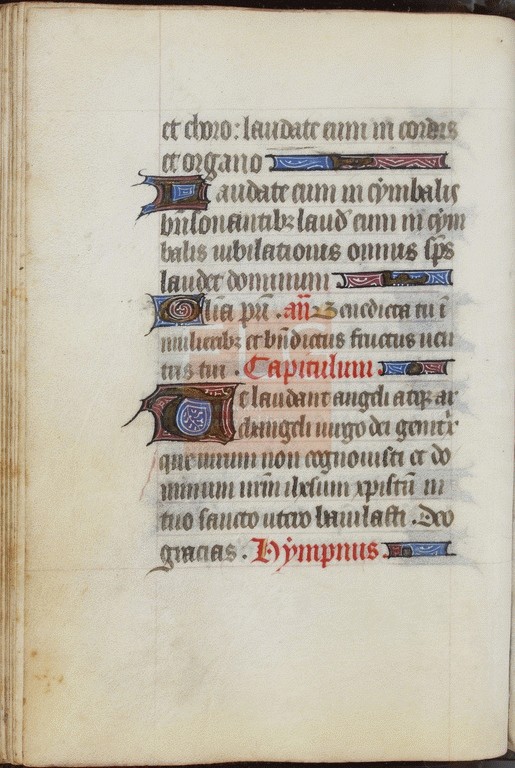 et choro: laudate eum in cordis
et organo
Laudate eum in cymbalis
bn̄sonantibꝫ laud̉ eum in cym
balis iubilationis omnis sp̄s
laudet dominum
Gl̄ia pr̄i . an̄ Benedicta tu ī
mulieribꝫ et bn̄dictus fructus uen
tris tui . Capitulum
Te laudant angeli atqꝫ ar
changeli uirgo dei genitͥx
que uirum non cognouisti et do
minum nr̄m ihesum xp̄istū in
tuo sancto utero baiulasti . Deo
gracias . Hympnus.